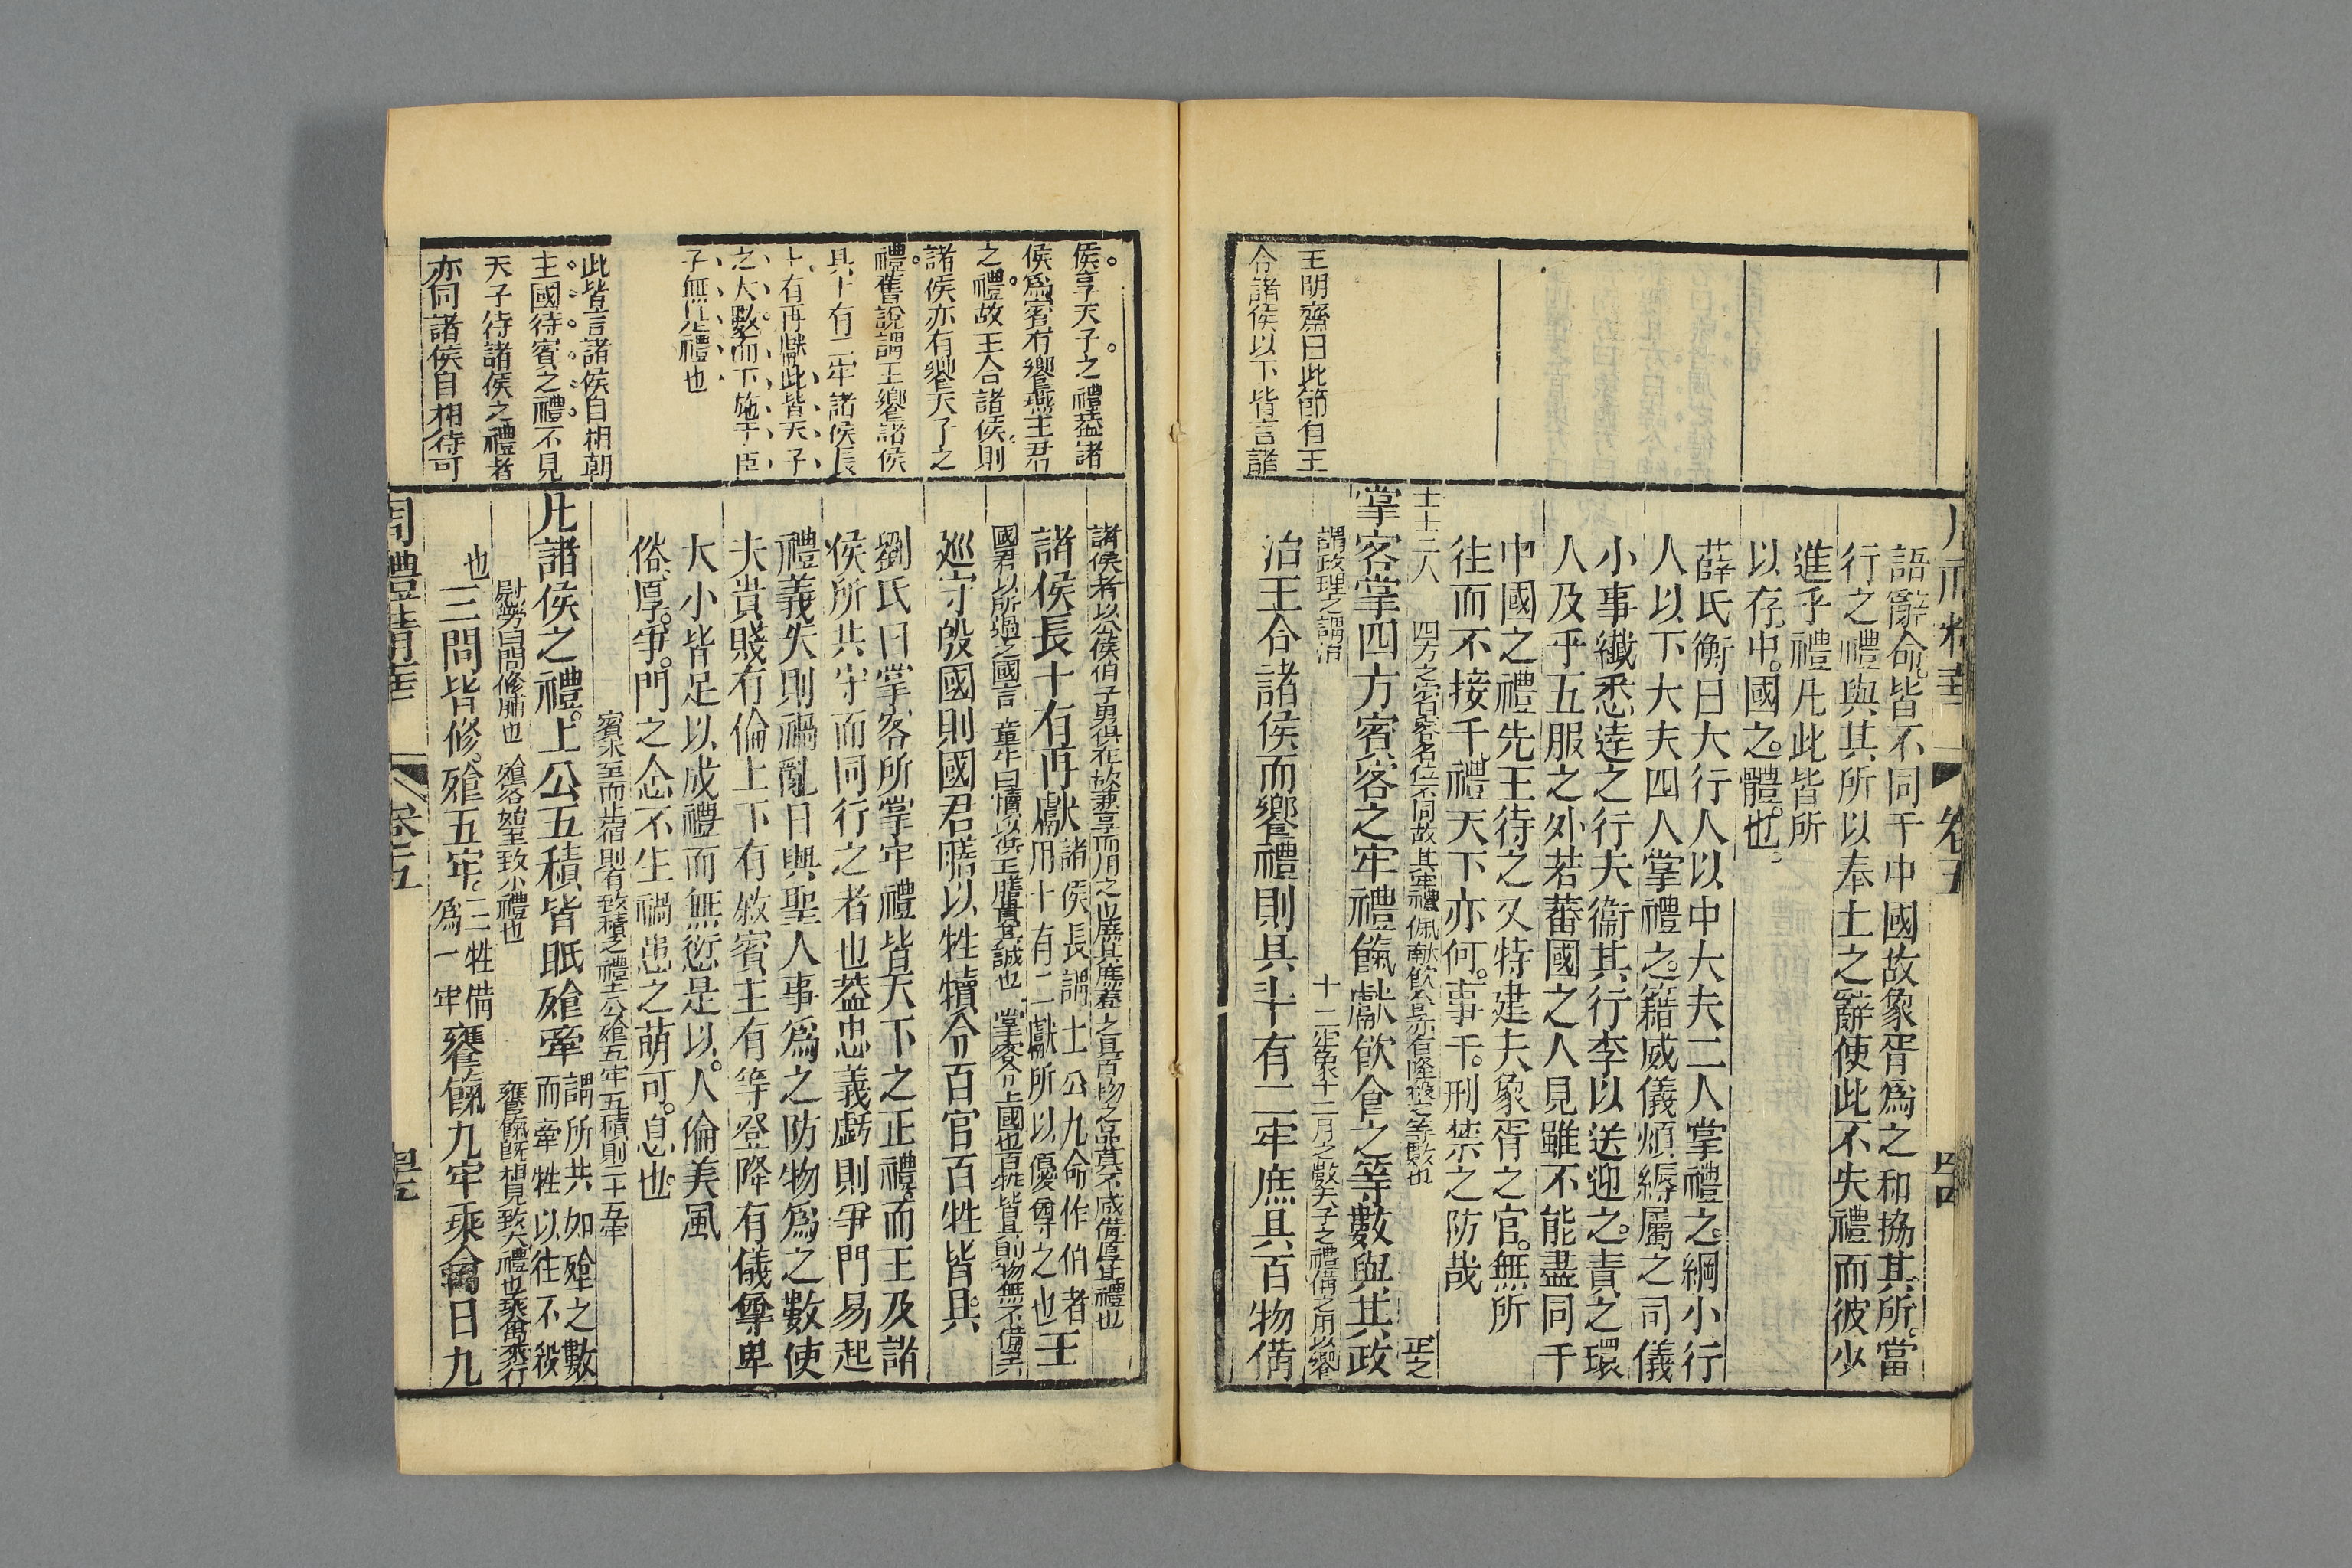 語辭命皆不同于中國故象胥爲之和協其所當
行之禮與其所以奉土之辭使此不失禮而彼少
進乎禮凡此皆所
以存中國之體也
薛氏衡曰大行人以中大夫二人掌禮之綱小行
人以下大夫四人掌禮之籍威儀煩縟屬之司儀
小事纖悉逹之行夫衞其行李以送迎之責之環
人及乎五服之外若蕃國之人見雖不能盡同于
中國之禮先王待之又特建夫象胥之官無所
往而不接于禮天下亦何事于刑禁之防哉
王明齋曰此節有王
合諸侯以下皆言諸
士十二人
四方之宕客名位不同故其牢禮佩献飲食亦有隆殺之等數也
正之
掌客掌四方賔客之牢禮餼獻飮食之等數與其政
謂政理之謂治
十二牢象十二月之數天子之禮備之用以饗
治王合諸侯而饗禮則具十有二牢庶具百物偹
侯享天子之禮葢諸
侯爲賔有饗燕主君
之禮故王合諸侯則
諸侯亦有饗天子之
禮舊說謂王饗諸侯
具十有二牢諸侯長
十有再獻此皆天子
之大數而下施于臣
子無是禮也
此皆言諸侯自相朝
主國待賔之禮不見
天子待諸侯之禮者
亦同諸侯自相待可
諸侯者以公侯伯子男俱在故兼享而用之也庶具庶羞之具百物之品莫不咸備厚其禮也
諸侯長十有再獻
諸侯長謂上公九命作伯者
用十有二獻所以優尊之也
王
國君以所過之國言
童牛曰犢以供王膳貴其誠也
掌客令上國也百牲皆具則物無不備矣
巡守殷國則國君膳以牲犢令百官百牲皆具
劉氏曰掌客所掌牢禮皆天下之正禮而王及諸
侯所共守而同行之者也葢忠義虧則爭鬥易起
禮義失則禍亂日興聖人事爲之防物爲之數使
夫貴賤有倫上下有敘賓主有等登降有儀尊卑
大小皆足以成禮而無愆是以人倫美風
俗厚爭鬥之念不生禍患之萌可息也
賓未至而止宿則有致積之禮上公飧五牢五積則二十五牢
凡諸侯之禮上公五積皆眡飧牽
謂所共如飧之數
而牽牲以往不殺
慰勞曰問修脯也
飧客始至致小禮也
饔餼旣相見致大禮也乘禽乘行
也
三問皆修飧五牢
三牲備
爲一牢
饔餼九牢乘禽日九
周禮精華
卷五